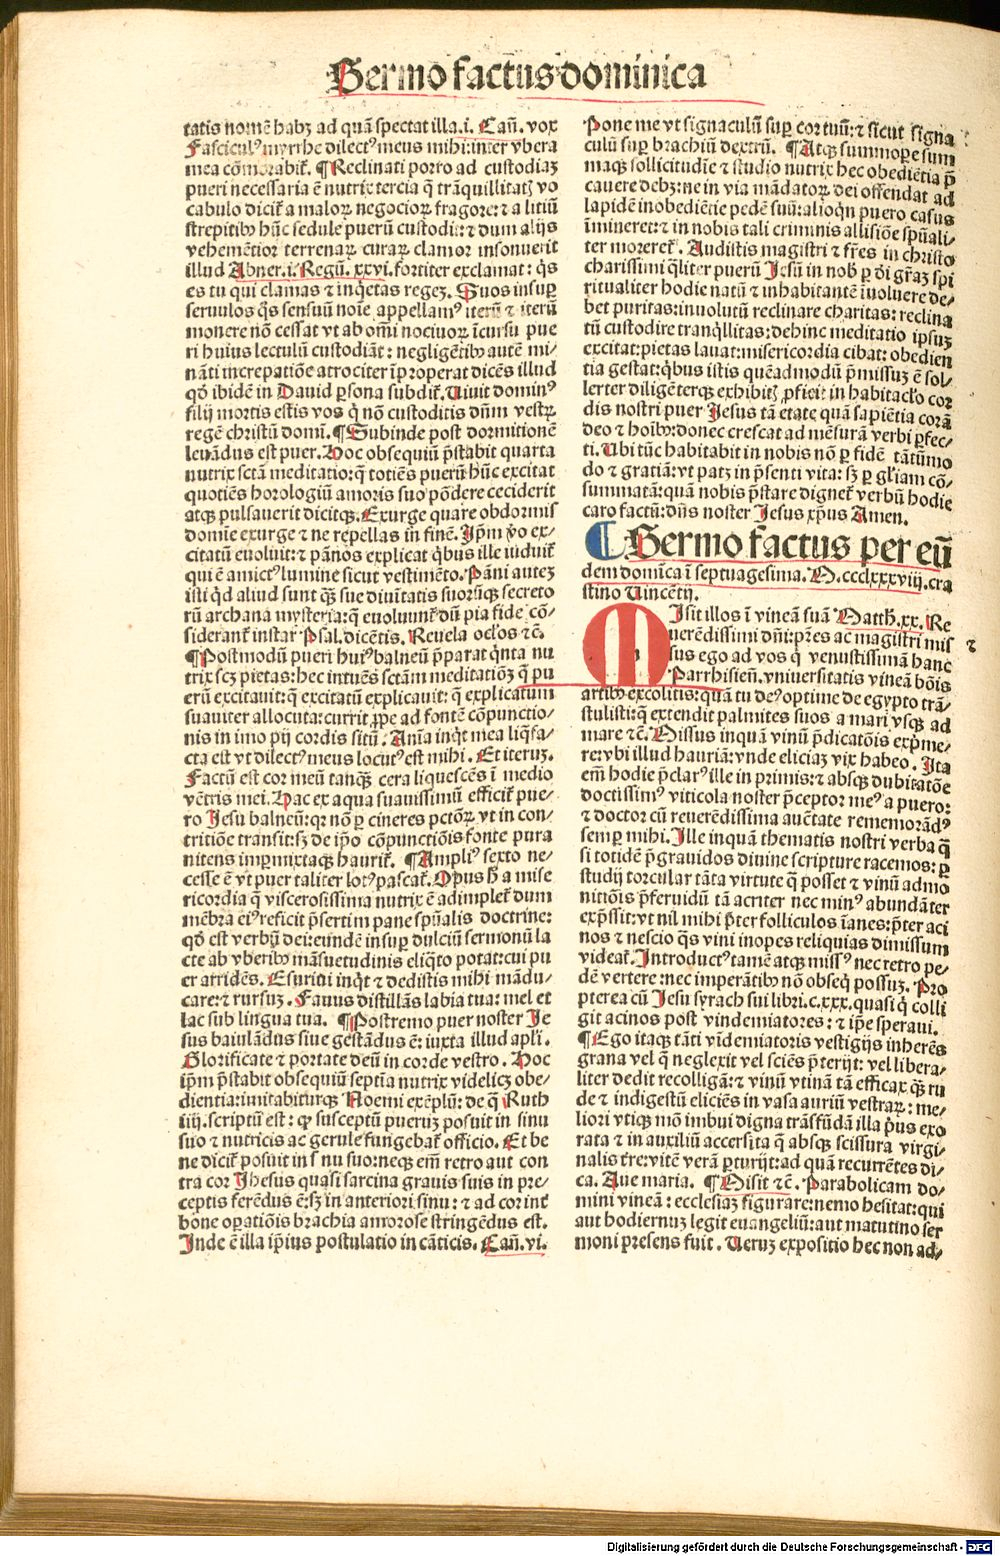 Sermo factus dominica
tatis nomē habꝫ ad quā spectat illa.i. Cañ. vox
Fasciculꝰ myrrhe dilectꝰ meus mihi:inter vbera
mea cōmorabit̄. ¶Reclinati porro ad custodiaꝫ
pueri necessaria ē nutrix tercia q̄ trāquillitatꝭ vo
cabulo dicit̄ a malorꝝ negociorꝝ fragore:⁊ a litiū
strepitibꝰ hūc sedule puerū custodit:⁊ dum alijs
vehemētior terrenarꝝ curarꝝ clamor insonuerit
illud Abner.i. Regū. xxvi.fortiter exclamat: q̇s
es tu qui clamas ⁊ inq̇etas regeꝫ. Suos insuꝑ
seruulos q̇s sensuū noīe appellamꝰ iterū ⁊ iterū
monere nō cessat vt ab om̄i nociuorꝝ īcursu pue
ri huius lectulū custodiāt: negligētibꝰ autē mi⸗
nāti increpatiōe atrociter īproperat dicēs illud
qđ ibidē in Dauid ꝑsona subdit̄. Uiuit dominꝰ
filij mortis estis vos q̇ nō custoditis dn̄m vestꝝ
regē christū domī.¶Subinde post dormitionē
leuādus est puer.Hoc obsequiū p̄stabit quarta
nutrix sctā meditatio:q̄ totiēs puerū hūc excitat
quotiēs horologiū amoris suo pōdere ceciderit
atqꝫ pulsauerit dicitqꝫ.Exurge quare obdormis
domīe exurge ⁊ ne repellas in finē.Ip̄m ꝟo ex⸗
citatū euoluit:⁊ pānos explicat q̇bus ille īduit̄
qui ē amictꝰ lumine sicut vestimēto.Pāni auteꝫ
isti qđ aliud sunt q̄ꝫ sue diuītatis suorūqꝫ secreto
rū archana mysteria:q̄ euoluunt̄ dū pia fide cō⸗
siderant̄ instar Psal.dicētis. Reuela oclōs ⁊c̄.
¶Postmodū pueri huiꝰ balneū p̄parat q̇nta nu
trix scꝫ pietas:hec intuēs sctām meditatiōꝫ q̄ pu
erū excitauit:q̄ excitatū explicauit: q̄ explicatum
suauiter allocuta:currit ꝓpe ad fontē cōpunctio⸗
nis in imo pij cordis sitū. Aīa inq̇t mea liq̄fa⸗
cta est vt dilectꝰ meus locutꝰ est mihi. Et iteruꝫ.
Factū est cor meū tanqꝫ cera liquescēs ī medio
vētris mei.Hac ex aqua suauissimū efficit̄ pue⸗
ro Jesu balneū:qꝛ nō ꝑ cineres pctōrꝝ vt in con⸗
tritiōe transit:sꝫ de ip̄o cōpunctiōis fonte pura
nitens impmixtaqꝫ haurit̄. ¶Ampliꝰ sexto ne⸗
cesse ē vt puer taliter lotꝰ pascat̄.Opus ħ a mise
ricordia q̄ viscerosissima nutrix ē adimplet̄ dum
mēbra eiꝰ reficit p̄sertim pane spūalis doctrine:
qđ est verbū dei:eundē insuꝑ dulciū sermonū la
cte ab vberibꝰ māsuetudinis eliq̇to potat:cui pu
er arridēs. Esuriui inq̇t ⁊ dedistis mihi mādu⸗
care:⁊ rursuꝫ. Fauus distillās labia tua: mel et
lac sub lingua tua. ¶Postremo puer noster Je
sus baiulādus siue gestādus ē: iuxta illud apl̄i.
Glorificate ⁊ portate deū in corde vestro. Hoc
ip̄m p̄stabit obsequiū septīa nutrix videlicꝫ obe⸗
dientia:imitabiturqꝫ Noemi exēplū: de q̄ Ruth
iiij.scriptū est: qꝙ susceptū pueruꝫ posuit in sinu
suo ⁊ nutricis ac gerule fungebat̄ officio. Et be
ne dicit̄ posuit in sinu suo:neqꝫ em̄ retro aut con
tra cor Jhesus quasi sarcina grauis suis in pre⸗
ceptis ferēdus ē:sꝫ in anteriori sinu: ⁊ ad cor int̄
bone opatiōis brachia amorose stringēdus est.
Inde ē illa ip̄ius postulatio in cāticis. Cañ.vi.
Pone me vt signaculū suꝑ cor tuū:⁊ sicut signa
culū suꝑ brachiū dextrū. ¶Atqꝫ summopere sum
maqꝫ sollicitudīe ⁊ studio nutrix hec obediētia p̄
cauere debꝫ:ne in via mādatorꝝ dei offendat ad
lapidē inobediētie pedē suū:alioq̇n puero casus
īmineret:⁊ in nobis tali criminis allisiōe spūali⸗
ter moreret̄. Audistis magistri ⁊ fr̄es in christo
charissimi q̇liter puerū Jesū in nob̄ ꝑ d̄i gr̄aꝫ spi
ritualiter hodie natū ⁊ inhabitantē īuoluere de⸗
bet puritas:inuolutū reclinare charitas: reclina
tū custodire tranq̇llitas:dehinc meditatio ipsuꝫ
excitat:pietas lauat:misericordia cibat: obedien
tia gestat:q̇bus istis quēadmodū p̄missuꝫ ē sol⸗
lerter diligēterqꝫ exhibitꝭ ꝓficit in habitaclo cor
dis nostri puer Jesus tā etate quā sapiētia corā
deo ⁊ hoībꝰ:donec crescat ad mēsurā verbi ꝑfec⸗
ti.Ubi tūc habitabit in nobis nō ꝑ fidē tātūmo
do ⁊ gratiā:vt patꝫ in p̄senti vita: sꝫ ꝑ gl̄iam cō⸗
summatā:quā nobis p̄stare dignet̄ verbū hodie
caro factū:dn̄s noster Jesus xp̄us Amen.
¶Sermo factus per eū
dem domīca ī septuagesima. M.ccclxxxviij.cra
stino Uincētij.
MIsit illos ī vineā suā Matth̄.xx. Re
uerēdissimi dn̄i:pr̄es ac magistri mis
sus ego ad vos q̇ venustissimā hanc
Parrhisieñ.vniuersitatis vineā bōis
artibꝰ excolitis:quā tu deꝰ optime de egypto trā⸗
stulisti:q̄ extendit palmites suos a mari vsqꝫ ad
mare ⁊c̄. Missus inquā vinū p̄dicatōis exp̄me⸗
re:vbi illud hauriā:vnde eliciaꝫ vix habeo. Ita
em̄ hodie p̄clarꝰ ille in primis:⁊ absqꝫ dubitatōe
doctissimꝰ viticola noster p̄ceptor meꝰ a puero:
⁊ doctor cū reuerēdissima auētate rememorādꝰ
semꝑ mihi.Ille inquā thematis nostri verba q̄ꝫ
si totidē p̄grauidos diuine scripture racemos: ꝑ
studij torcular tāta virtute q̄ posset ⁊ vinū admo
nitiōis p̄feruidū tā acriter nec minꝰ abundāter
exp̄ssit:vt nil mihi p̄ter folliculos īanes:p̄ter aci
nos ⁊ nescio q̇s vini inopes reliquias dimissum
videat̄.Introductꝰ tamē atqꝫ missꝰ nec retro pe⸗
dē vertere:nec imperātibꝰ nō obseq̇ possuꝫ. Pro
pterea cū Jesu syrach sui libri.c.xxx.quasi q̇ colli
git acinos post vindemiatores: ⁊ ip̄e speraui.
¶Ego itaqꝫ tāti videmiatoris vestigijs inherēs
grana vel q̄ neglexit vel sciēs p̄terijt: vel libera⸗
liter dedit recolligā:⁊ vinū vtinā tā efficax qꝫ ru
de ⁊ indigestū eliciēs in vasa auriū vestrarꝝ: me⸗
liori vtiqꝫ mō imbui digna trāsfūdā illa p̄us exo
rata ⁊ in auxiliū accersita q̄ absqꝫ scissura virgi⸗
nalis t̄re:vitē verā ꝑturijt:ad quā recurrētes di⸗
ca. Aue maria. ¶Misit ⁊c̄. Parabolicam do⸗
mini vineā: ecclesiaꝫ figurare:nemo hesitat:qui
aut hodiernuꝫ legit euangeliū:aut matutino ser
moni presens fuit. Ueruꝫ expositio hec non ad⸗
Digitalisierung gefördert durch die Deutsche Forschungsgemeinschaft - DFG